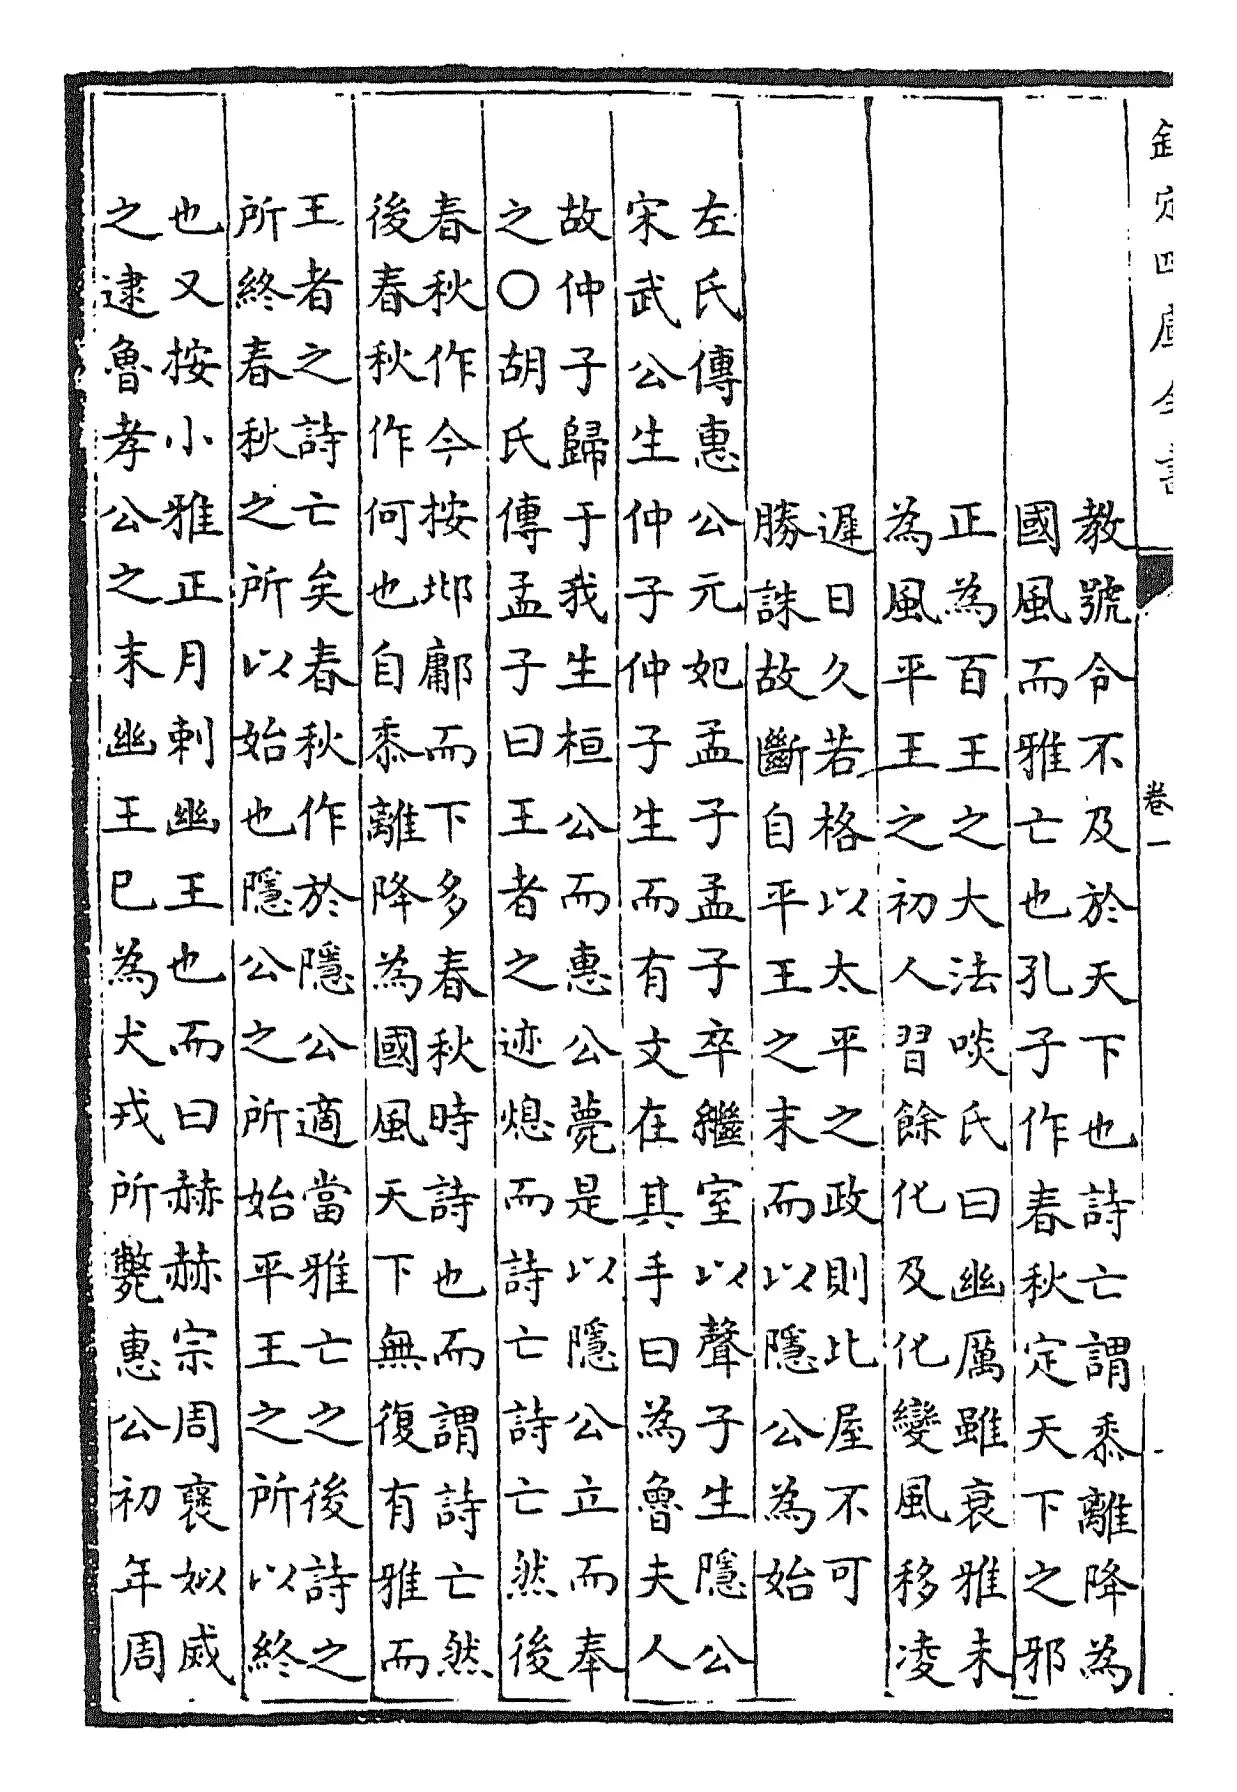 欽定四庫全書
卷一
教號令不及於天下也詩亡謂黍離降為
國風而雅亡也孔子作春秋定天下之邪
正為百王之大法啖氏曰幽厲雖衰雅未
為風平王之初人習餘化及化變風移凌
遲日久若格以太平之政則比屋不可
勝誅故斷自平王之末而以隱公為始
左氏傳惠公元妃孟子孟子卒繼室以聲子生隱公
宋武公生仲子仲子生而有文在其手曰為魯夫人
故仲子歸于我生桓公而惠公薨是以隱公立而奉
之〇胡氏傳孟子曰王者之迹熄而詩亡詩亡然後
春秋作今按邶鄘而下多春秋時詩也而謂詩亡然
後春秋作何也自黍離降為國風天下無復有雅而
王者之詩亡矣春秋作於隱公適當雅亡之後詩之
所終春秋之所以始也隱公之所始平王之所以終
也又按小雅正月刺幽王也而曰赫赫宗周襃姒烕
之逮魯孝公之末幽王巳為犬戎所斃惠公初年周